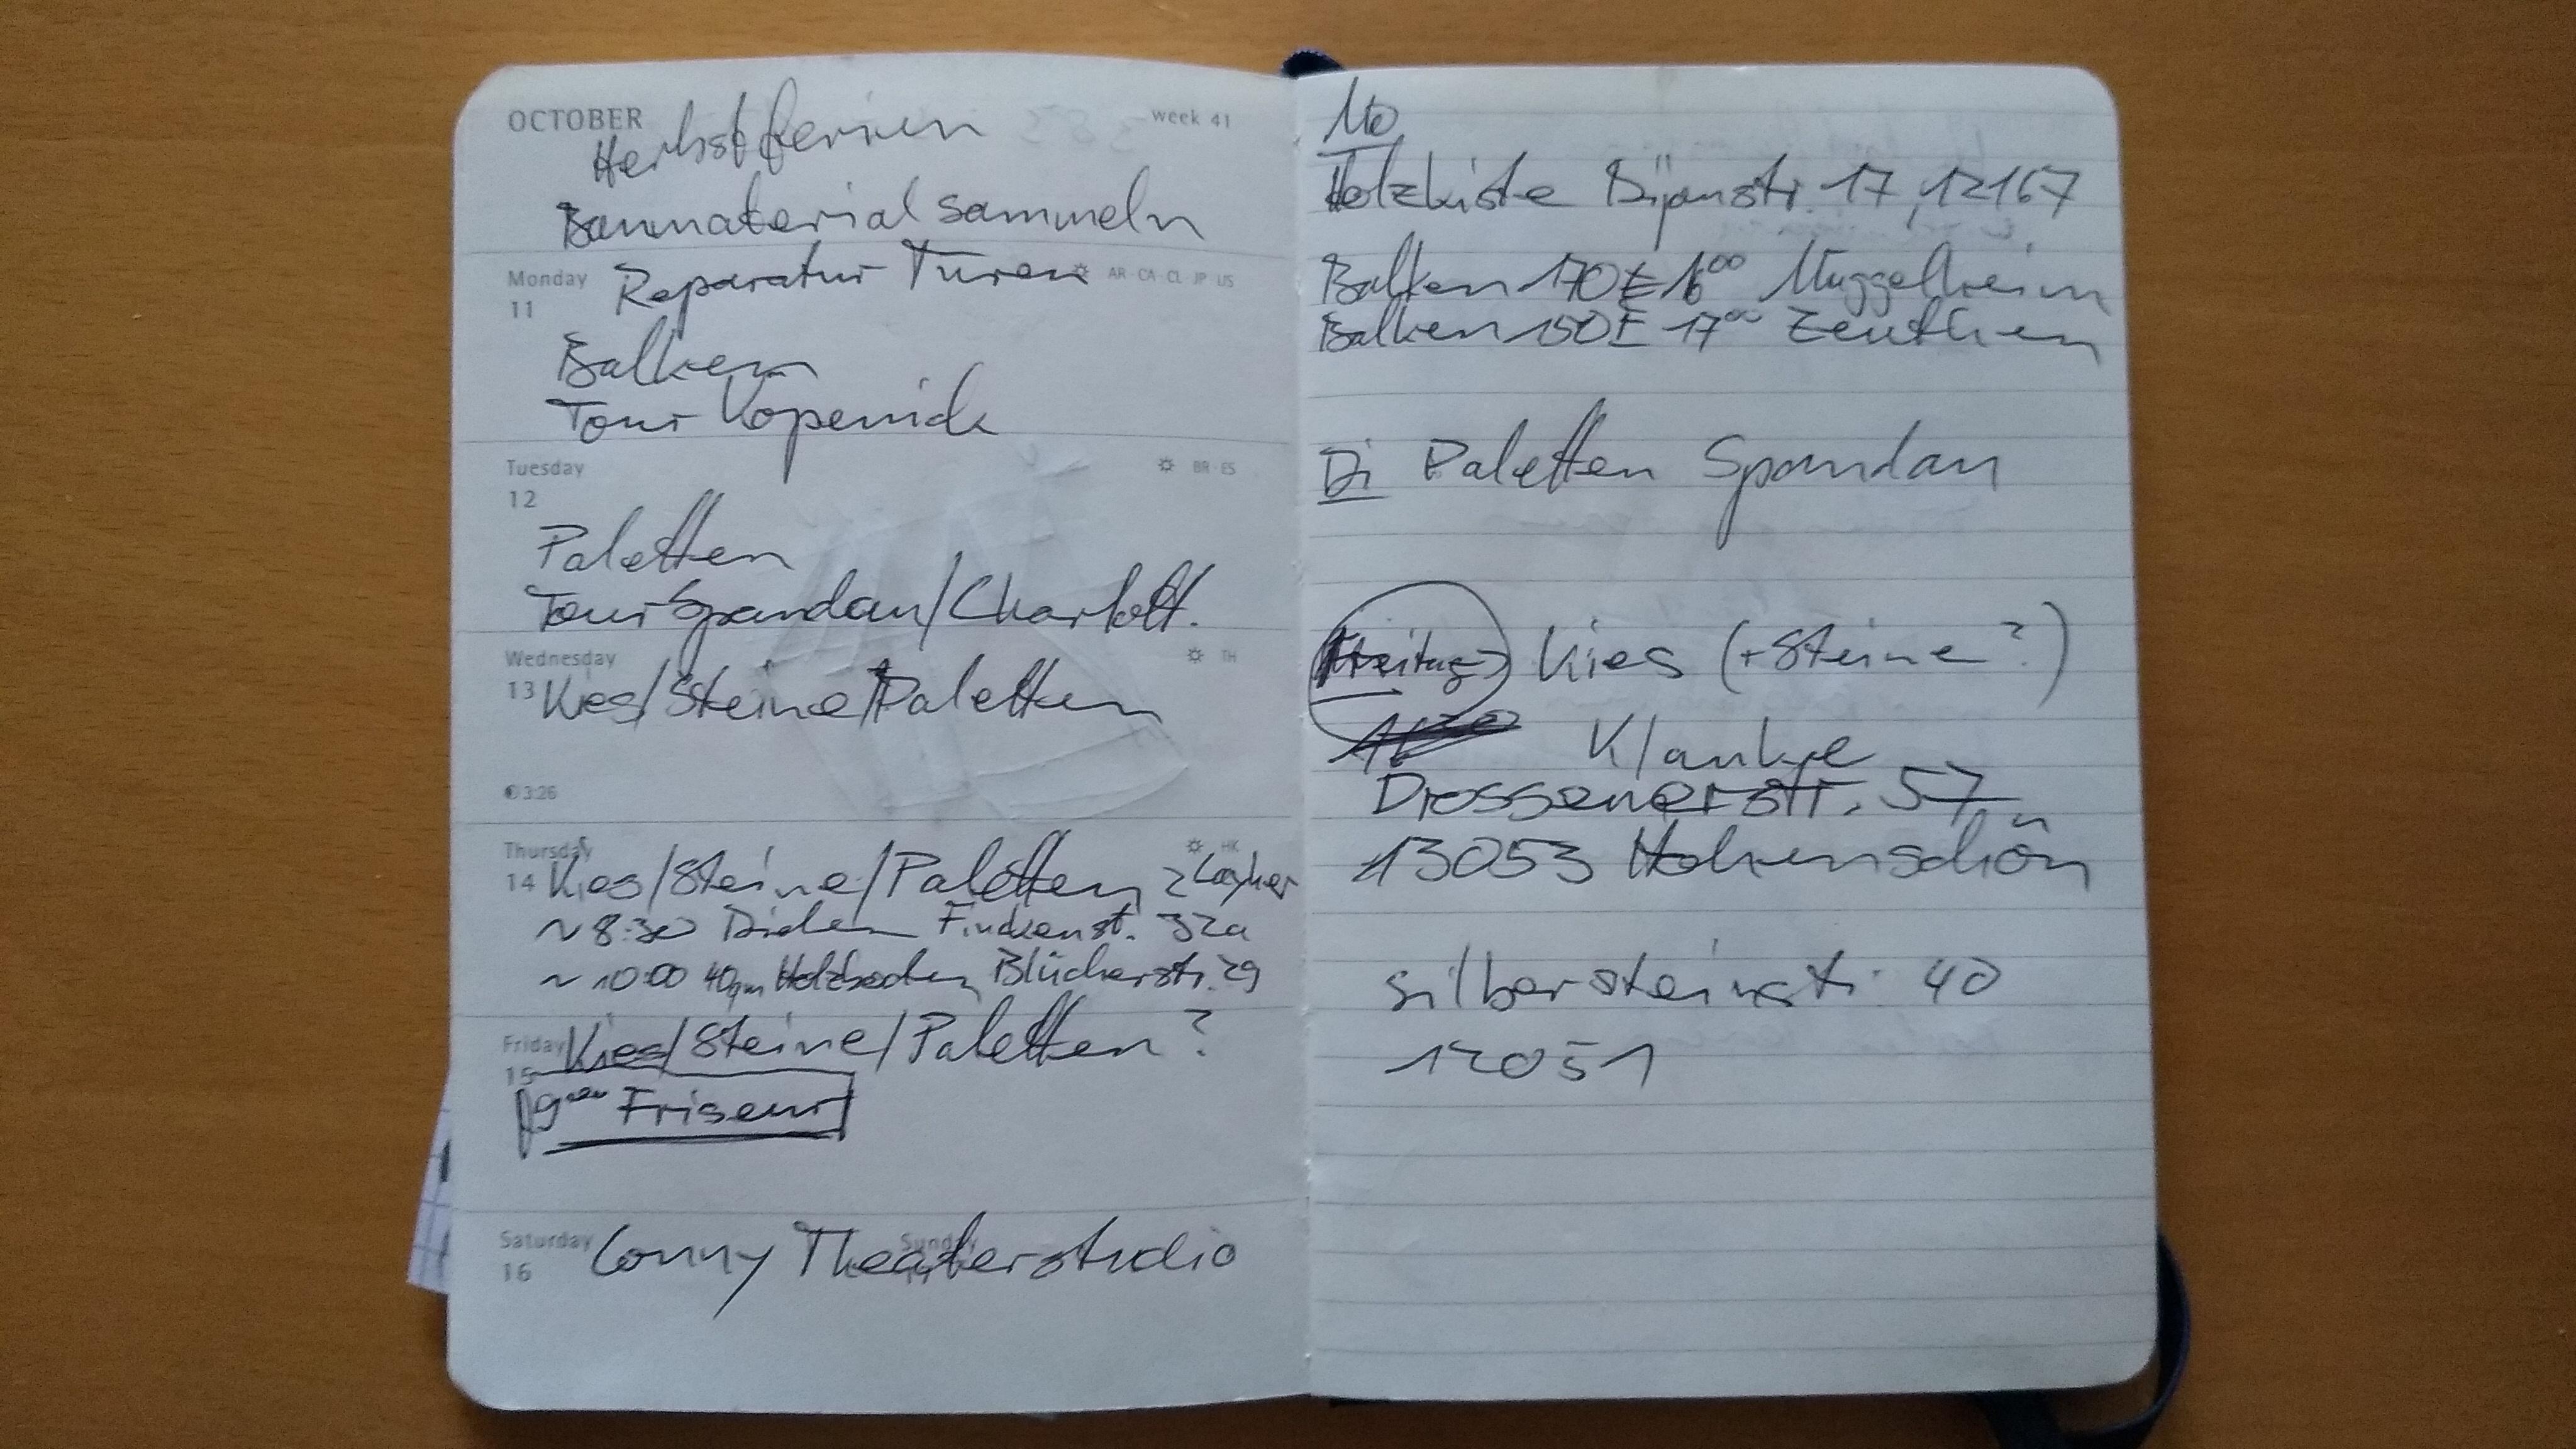 OCTOBER week 41
Herbstferien
Baumaterial sammeln
Monday Reparatur Türen AR · CA · CL · JP · US
11
Balken
Tour Köpenick
Tuesday BR · ES
12
Paletten
Tour Spandau/Charlott.
Wednesday TH
13 Kies/Steine/Paletten
3:26
Thursday HK
14 Kies/Steine/Paletten
~ 8:30 Dielen Finckenst. 32a
~ 10:00 40qm Holzboden Blücherstr. 29
Friday Kies/Steine/Paletten?
15
9 Friseur
Saturday Conny Theaterstudio Sunday
16
Mo
Holzkiste 17, 12167
Balken 170€ 16⁰⁰ Müggelheim
Balken 150€ 17⁰⁰ Zeuthen
Di Paletten Spandau
Freitag Kies (+Steine?)
Klantje
Drossenerstr. 57
13053 Hohenschön
Silbersteinstr. 40
12051